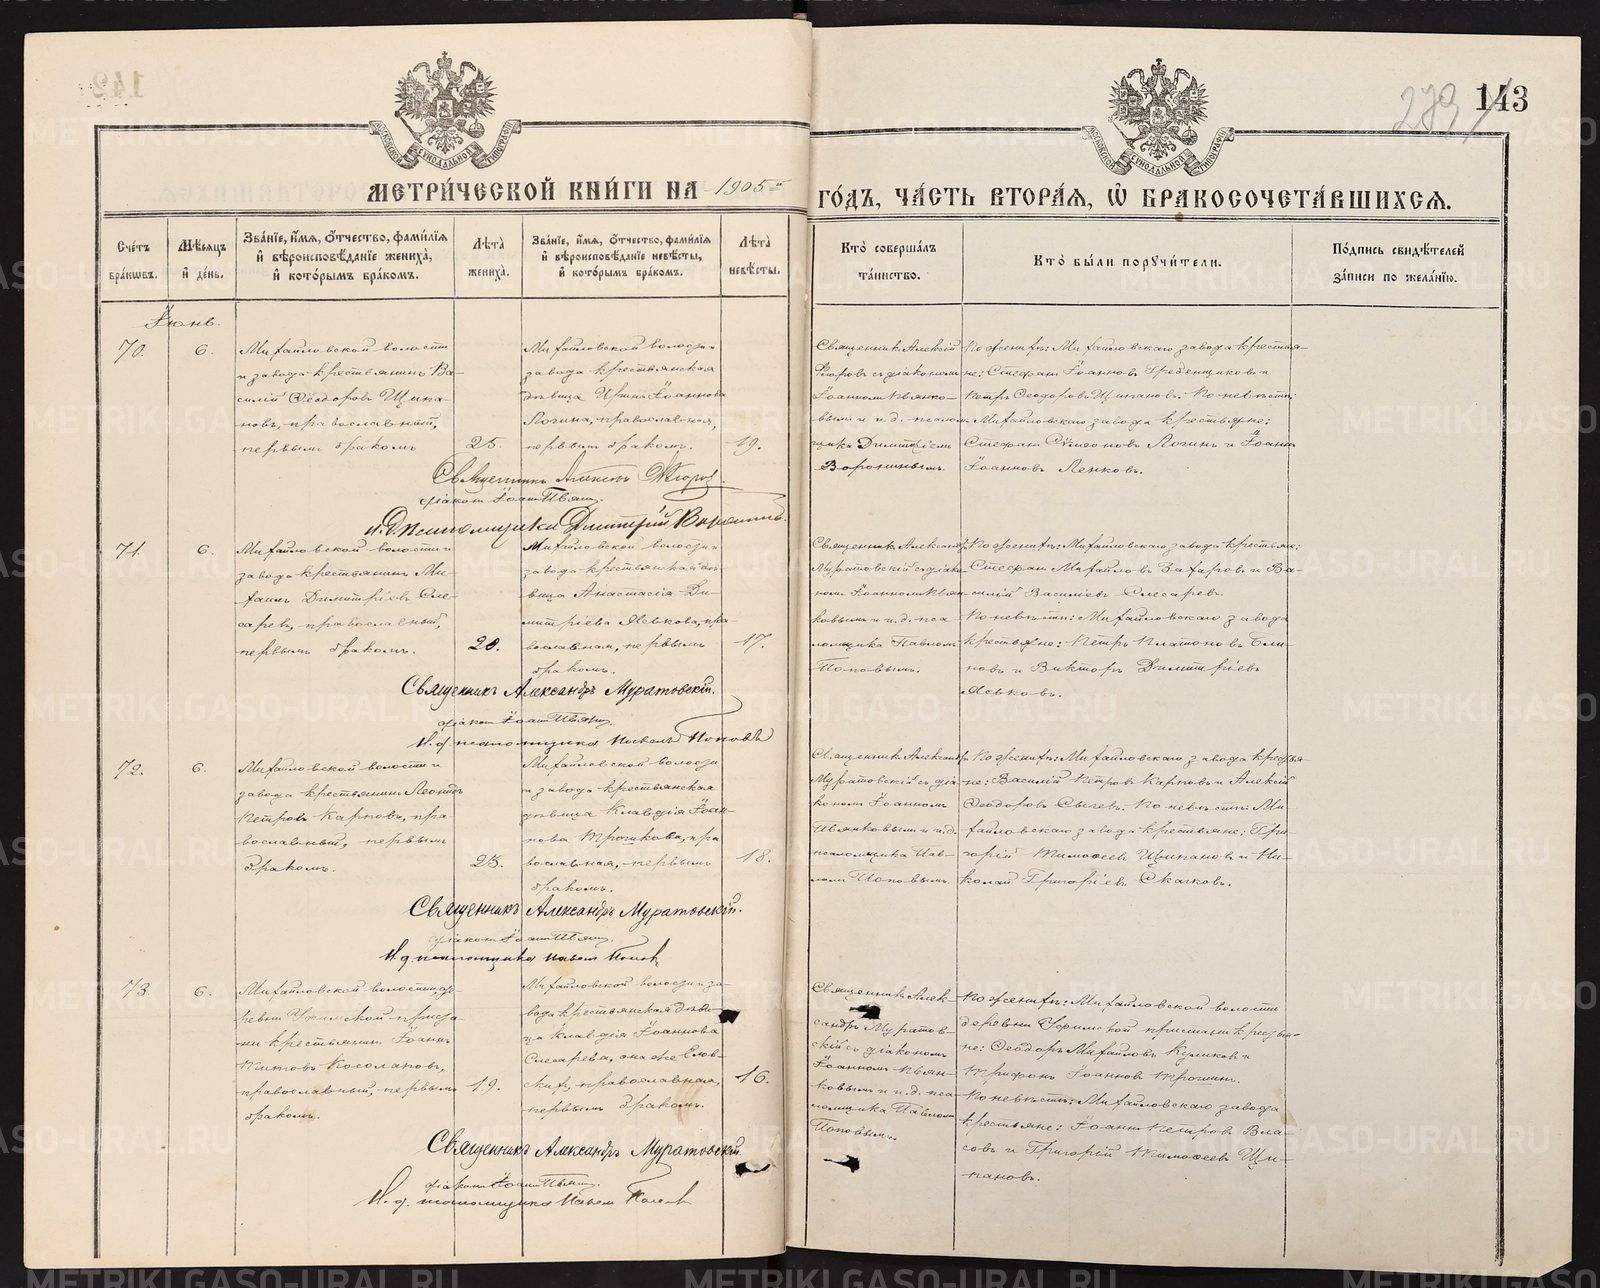 279
143
МЕТРИ́ЧЕСКОЙ КНИ́ГИ НА 1905й
ГО́ДЪ, ЧА́СТЬ ВТОРА́Я, Ѡ БРАКОСОЧЕТА́ВШИХСЯ.
Сче́тъ бра́кѡвъ.
Мѣ́сяцъ и де́нь.
Зва́нїе, и́мя, о́тчество, фами́лїя и вѣроисповѣ́данїе жениха̀, и кото́рымъ бра́комъ.
Лѣта̀ жениха̀.
Зва́нїе, и́мя, о́тчество, фами́лїя и вѣроисповѣ́данїе невѣ́сты, и кото́рымъ бра́комъ.
Лѣта̀ невѣ́сты.
Кто̀ соверша́лъ та́инство.
Кто̀ бы́ли порꙋчи́тели.
По́дпись свидѣ́телей за́писи по жела́нїю.
Іюнь.
70.
6.
Михайловской волости
и завода крестьянинъ Ва-
силій Ѳеодоровъ Щипа-
новъ, православный,
первымъ бракомъ
25.
Михайловской волости и
завода крестьянская
дѣвица Ирина Іоаннова
Логина, православная,
первымъ бракомъ.
19.
Священникъ Алексій
Флоровъ съ діакономъ
Іоанномъ Пьянко-
вымъ и и. д. псалом-
щика Димитріемъ
Воронинымъ.
По женихѣ: Михайловскаго завода крестья-
не: Стефанъ Іоанновъ Гребенщиковъ и
Петръ Ѳеодоровъ Щипановъ. По невѣстѣ:
Михайловскаго завода крестьяне:
Стефанъ Сѵмеоновъ Логинъ и Іоаннъ
Іоанновъ Ленковъ.
Священникъ Алексій Флоровъ
діаконъ Іоаннъ Пьянк.
и. д. псаломщика Дмитрій Воронинъ.
71.
6.
Михайловской волости и
завода крестьянинъ Ми-
хаилъ Димитріевъ Сле-
саревъ, православный,
первымъ бракомъ.
20.
Михайловской волости и
завода крестьянская дѣ-
вица Анастасія Ди-
митріева Яськова, пра-
вославная, первымъ
бракомъ.
17.
Священникъ Александръ
Муратовскій съ діако-
номъ Іоанномъ Пьян-
ковымъ и и. д. пса-
ломщика Павломъ
Поповымъ.
По женихѣ: Михайловскаго завода крестьяне:
Стефанъ Михайловъ Захаровъ и Ва-
силій Василіевъ Слесаревъ.
По невѣстѣ: Михайловскаго завода
крестьяне: Петръ Платоновъ Бли-
новъ и Викторъ Димитріевъ
Яськовъ.
Священникъ Александръ Муратовскій.
діаконъ Іоаннъ Пьянк.
И. д. псаломщика Павелъ Поповъ
72.
6.
Михайловской волости и
завода крестьянинъ Леонидъ
Петровъ Карповъ, пра-
вославный, первымъ
бракомъ.
23.
Михайловской волости
и завода крестьянская
дѣвица Клавдія Іоан-
нова Трошкова, пра-
вославная, первымъ
бракомъ.
18.
Священникъ Александръ
Муратовскій съ діа-
кономъ Іоанномъ
Пьянковымъ и и. д.
псаломщика Пав-
ломъ Поповымъ.
По женихѣ: Михайловскаго завода крестья-
не: Василій Петровъ Карповъ и Алексій
Ѳеодоровъ Сычевъ. По невѣстѣ: Ми-
хайловскаго завода крестьяне: Гри-
горій Тимоѳеевъ Щипановъ и Ни-
колай Григоріевъ Скачковъ.
Священникъ Александръ Муратовскій.
діаконъ Іоаннъ Пьянк.
И. д. псаломщика Павелъ Поповъ
73.
6.
Михайловской волости, де-
ревни Уфимской приста-
ни крестьянинъ Іоаннъ
Титовъ Косолаповъ,
православный, первымъ
бракомъ.
19.
Михайловской волости и за-
вода крестьянская дѣви-
ца Клавдія Іоаннова
Слесарева, она же Елов-
скихъ, православная,
первымъ бракомъ.
16.
Священникъ Алек-
сандръ Муратов-
скій съ діакономъ
Іоанномъ Пьян-
ковымъ и и. д. пса-
ломщика Павломъ
Поповымъ.
По женихѣ: Михайловской волости
деревни Уфимской пристани крестья-
не: Ѳеодоръ Михайловъ Куликовъ и
Трифонъ Іоанновъ Трошинъ.
По невѣстѣ: Михайловскаго завода
крестьяне: Іоаннъ Петровъ Вла-
совъ и Григорій Тимоѳеевъ Щи-
пановъ.
Священникъ Александръ Муратовскій
діаконъ Іоаннъ Пьянк.
И. д. псаломщика Павелъ Поповъ
METRIKI.GASO-URAL.RU